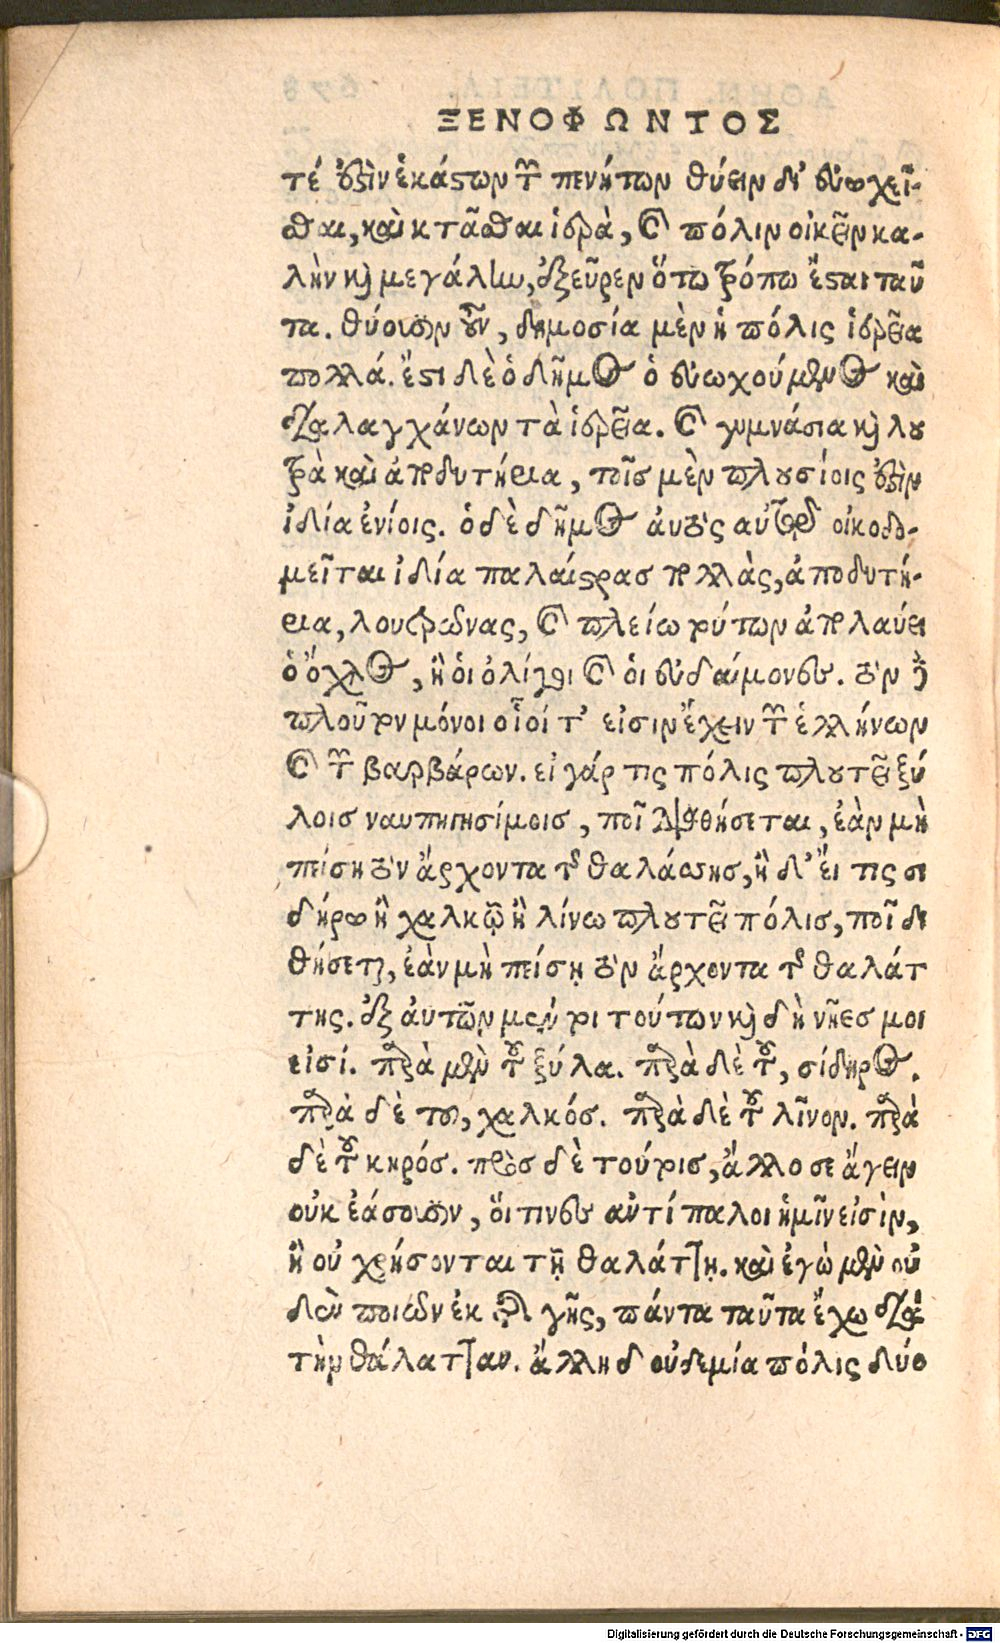 ΞΕΝΟΦΩΝΤΟΣ
τέ ἐστιν ἑκάστων τῶν πενήτων θύειν καὶ εὐωχεῖ-
σθαι, καὶ κτᾶσθαι ἱερὰ, καὶ πόλιν οἰκεῖν κα-
λὴν καὶ μεγάλην, ἐξεῦρεν ὅτω τρόπω ἔσται ταῦ
τα. θύουσιν οὖν, δημοσία μὲν ἡ πόλις ἱερεῖα
πολλά. ἔστι δὲ ὁ δῆμος ὁ εὐωχούμενος καὶ
διαλαγχάνων τὰ ἱερεῖα. καὶ γυμνάσια καὶ λου
τρὰ καὶ ἀποδυτήρια, τοῖς μὲν πλουσίοις ἐστὶν
ἰδία ἐνίοις. ὁ δὲ δῆμος ἀυτὸς αὑτῷ οἰκοδο-
μεῖται ἰδία παλαίστρας πολλὰς, ἀποδυτή-
ρια, λουτρῶνας, καὶ πλείω τούτων ἀπολαύει
ὁ ὄχλος, ἢ ὁι ὀλίγοι καὶ ὁι εὐδαίμονες. τὸν δὲ
πλοῦτον μόνοι οἷοί τ᾽ εἰσιν ἔχειν τῶν ἑλλήνων
καὶ τῶν βαρβάρων. εἰ γάρ τις πόλις πλουτεῖ ξύ
λοις ναυπηγησίμοις, ποῖ διαθήσεται, ἐὰν μὴ
πείση τὸν ἄρχοντα τῆς θαλάσσης, ἢ δ᾽ ἔι τις σι
δήρω ἢ χαλκῷ ἢ λίνω πλουτεῖ πόλις, ποῖ δια
θήσεται, ἐὰν μὴ πείσῃ τὸν ἄρχοντα τῆς θαλάτ
της. ἐξ ἀυτῶν μέντοι τούτων καὶ δὴ νῆες μοι
εἰσί. παρὰ μὲν τοῦ ξύλα. παρὰ δὲ τοῦ, σίδηρος.
παρὰ δὲ του, χαλκός. παρὰ δὲ τοῦ λῖνον. παρὰ
δὲ τοῦ κηρός. πρὸς δὲ τούτοις, ἄλλοσε ἄγειν
οὐκ ἐάσουσιν, ὅιτινες ἀντίπαλοι ἡμῖν εἰσὶν,
ἢ οὐ χρήσονται τῇ θαλάττῃ. καὶ ἐγὼ μὲν οὐ
δὲν ποιῶν ἐκ τῆς γῆς, πάντα ταῦτα ἔχω διὰ
τὴν θάλατταν. ἄλλη δ οὐδεμία πόλις δύο
Digitalisierung gefördert durch die Deutsche Forschungsgemeinschaft - DFG